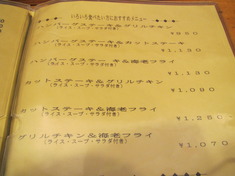 いろいろ食べたい方におすすめメニュー
ハンバーグステーキ&グリルチキン
(ライス・スープ・サラダ付き)
ハンバーグステーキ&カットステーキ
(ライス・スープ・サラダ付き)
¥1,180
ハンバーグステーキ&海老フライ
(ライス・スープ・サラダ付き)
¥1,130
カットステーキ&グリルチキン
(ライス・スープ・サラダ付き)
¥1,090
カットステーキ&海老フライ
(ライス・スープ・サラダ付き)
¥1,250
グリルチキン&海老フライ
(ライス・スープ・サラダ付き)
¥1,070